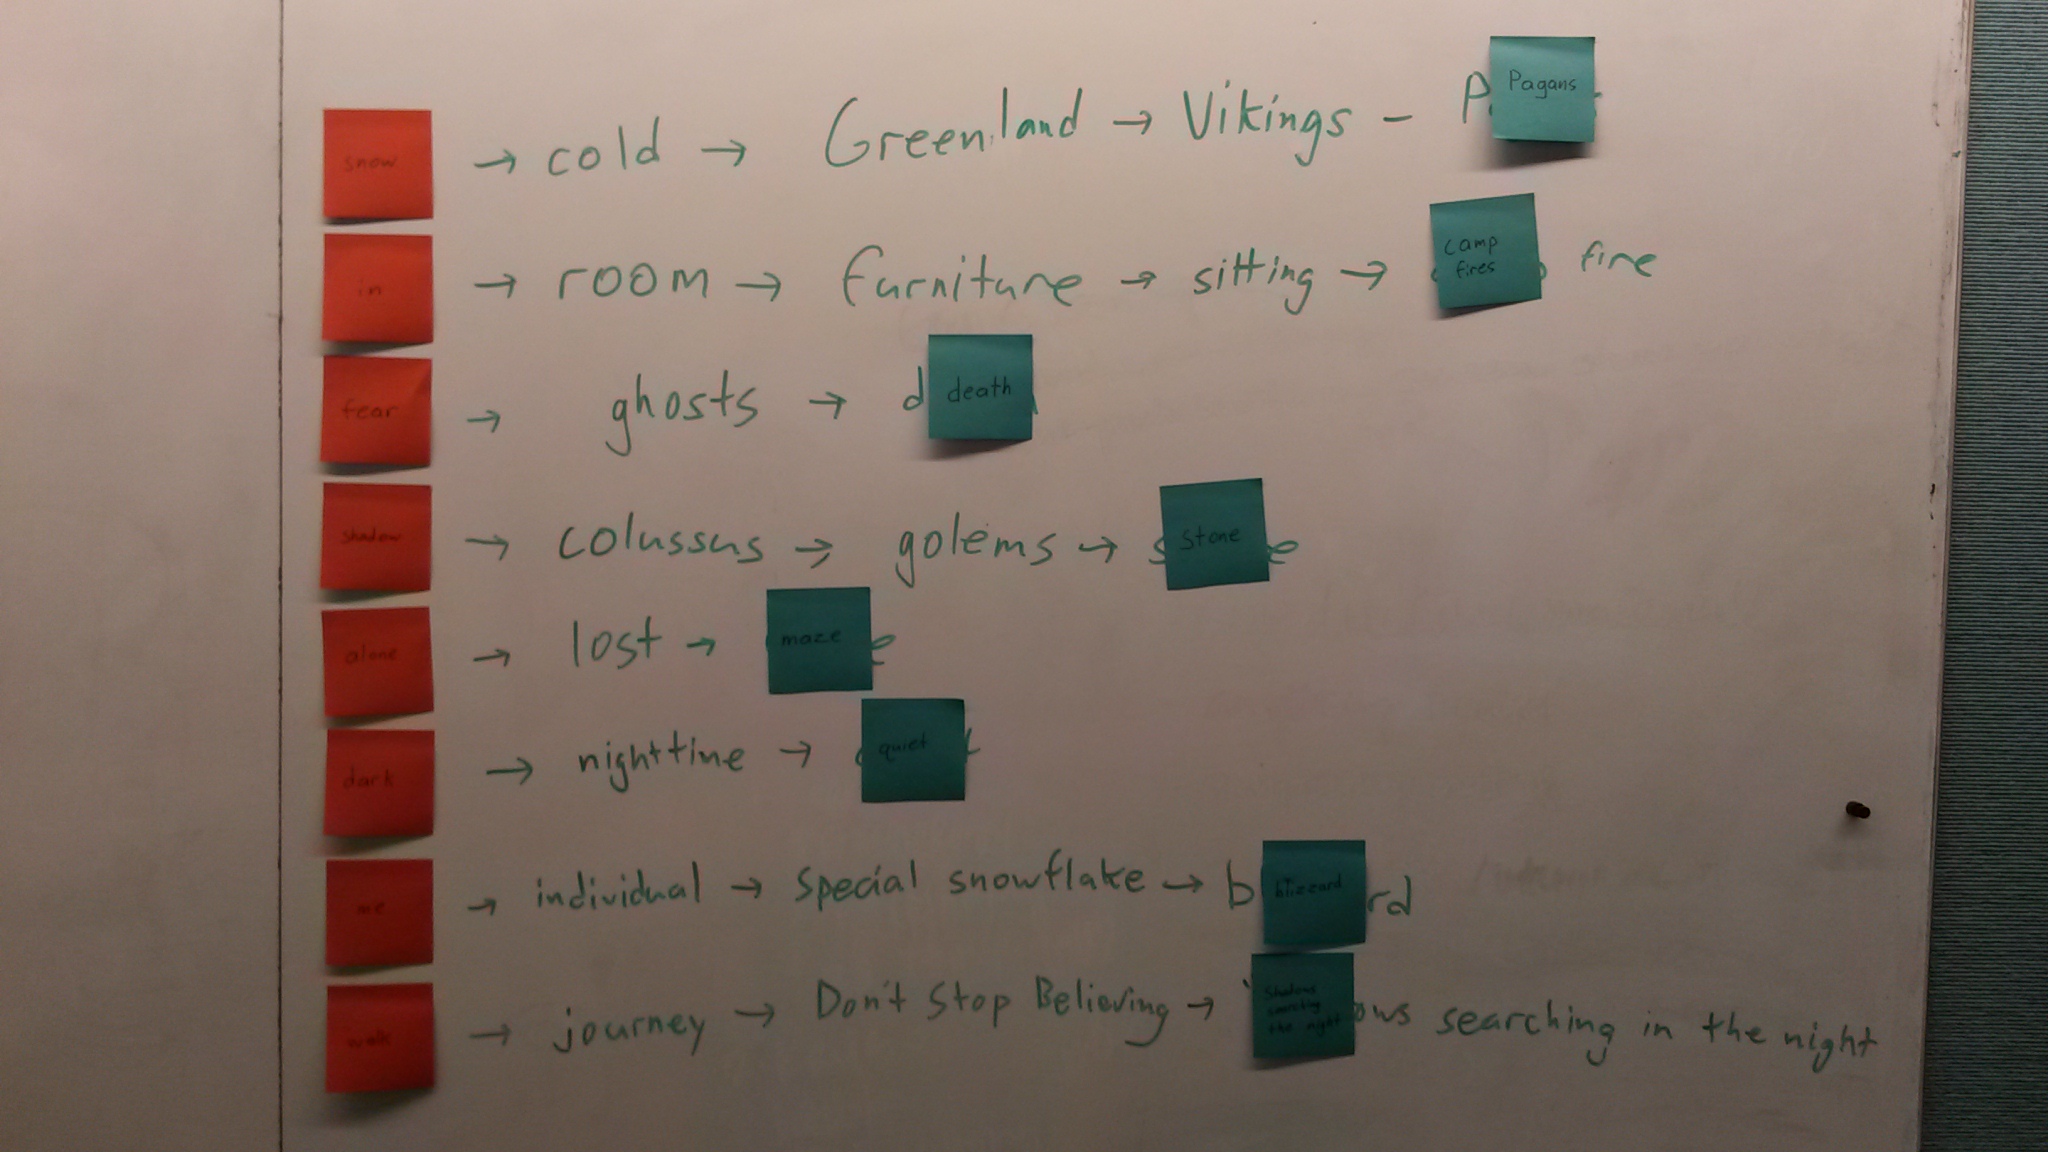 snow → cold → Greenland → Vikings - P Pagans
in → room → furniture → sitting → camp fires fire
fear → ghosts → d death
shadow → colussus → golems → s stone e
alone → lost → maze e
dark → nighttime → quiet t
me → individual → special snowflake → b blizzard rd
walk → journey → Don't Stop Believing → Shadows searching the night ows searching in the night